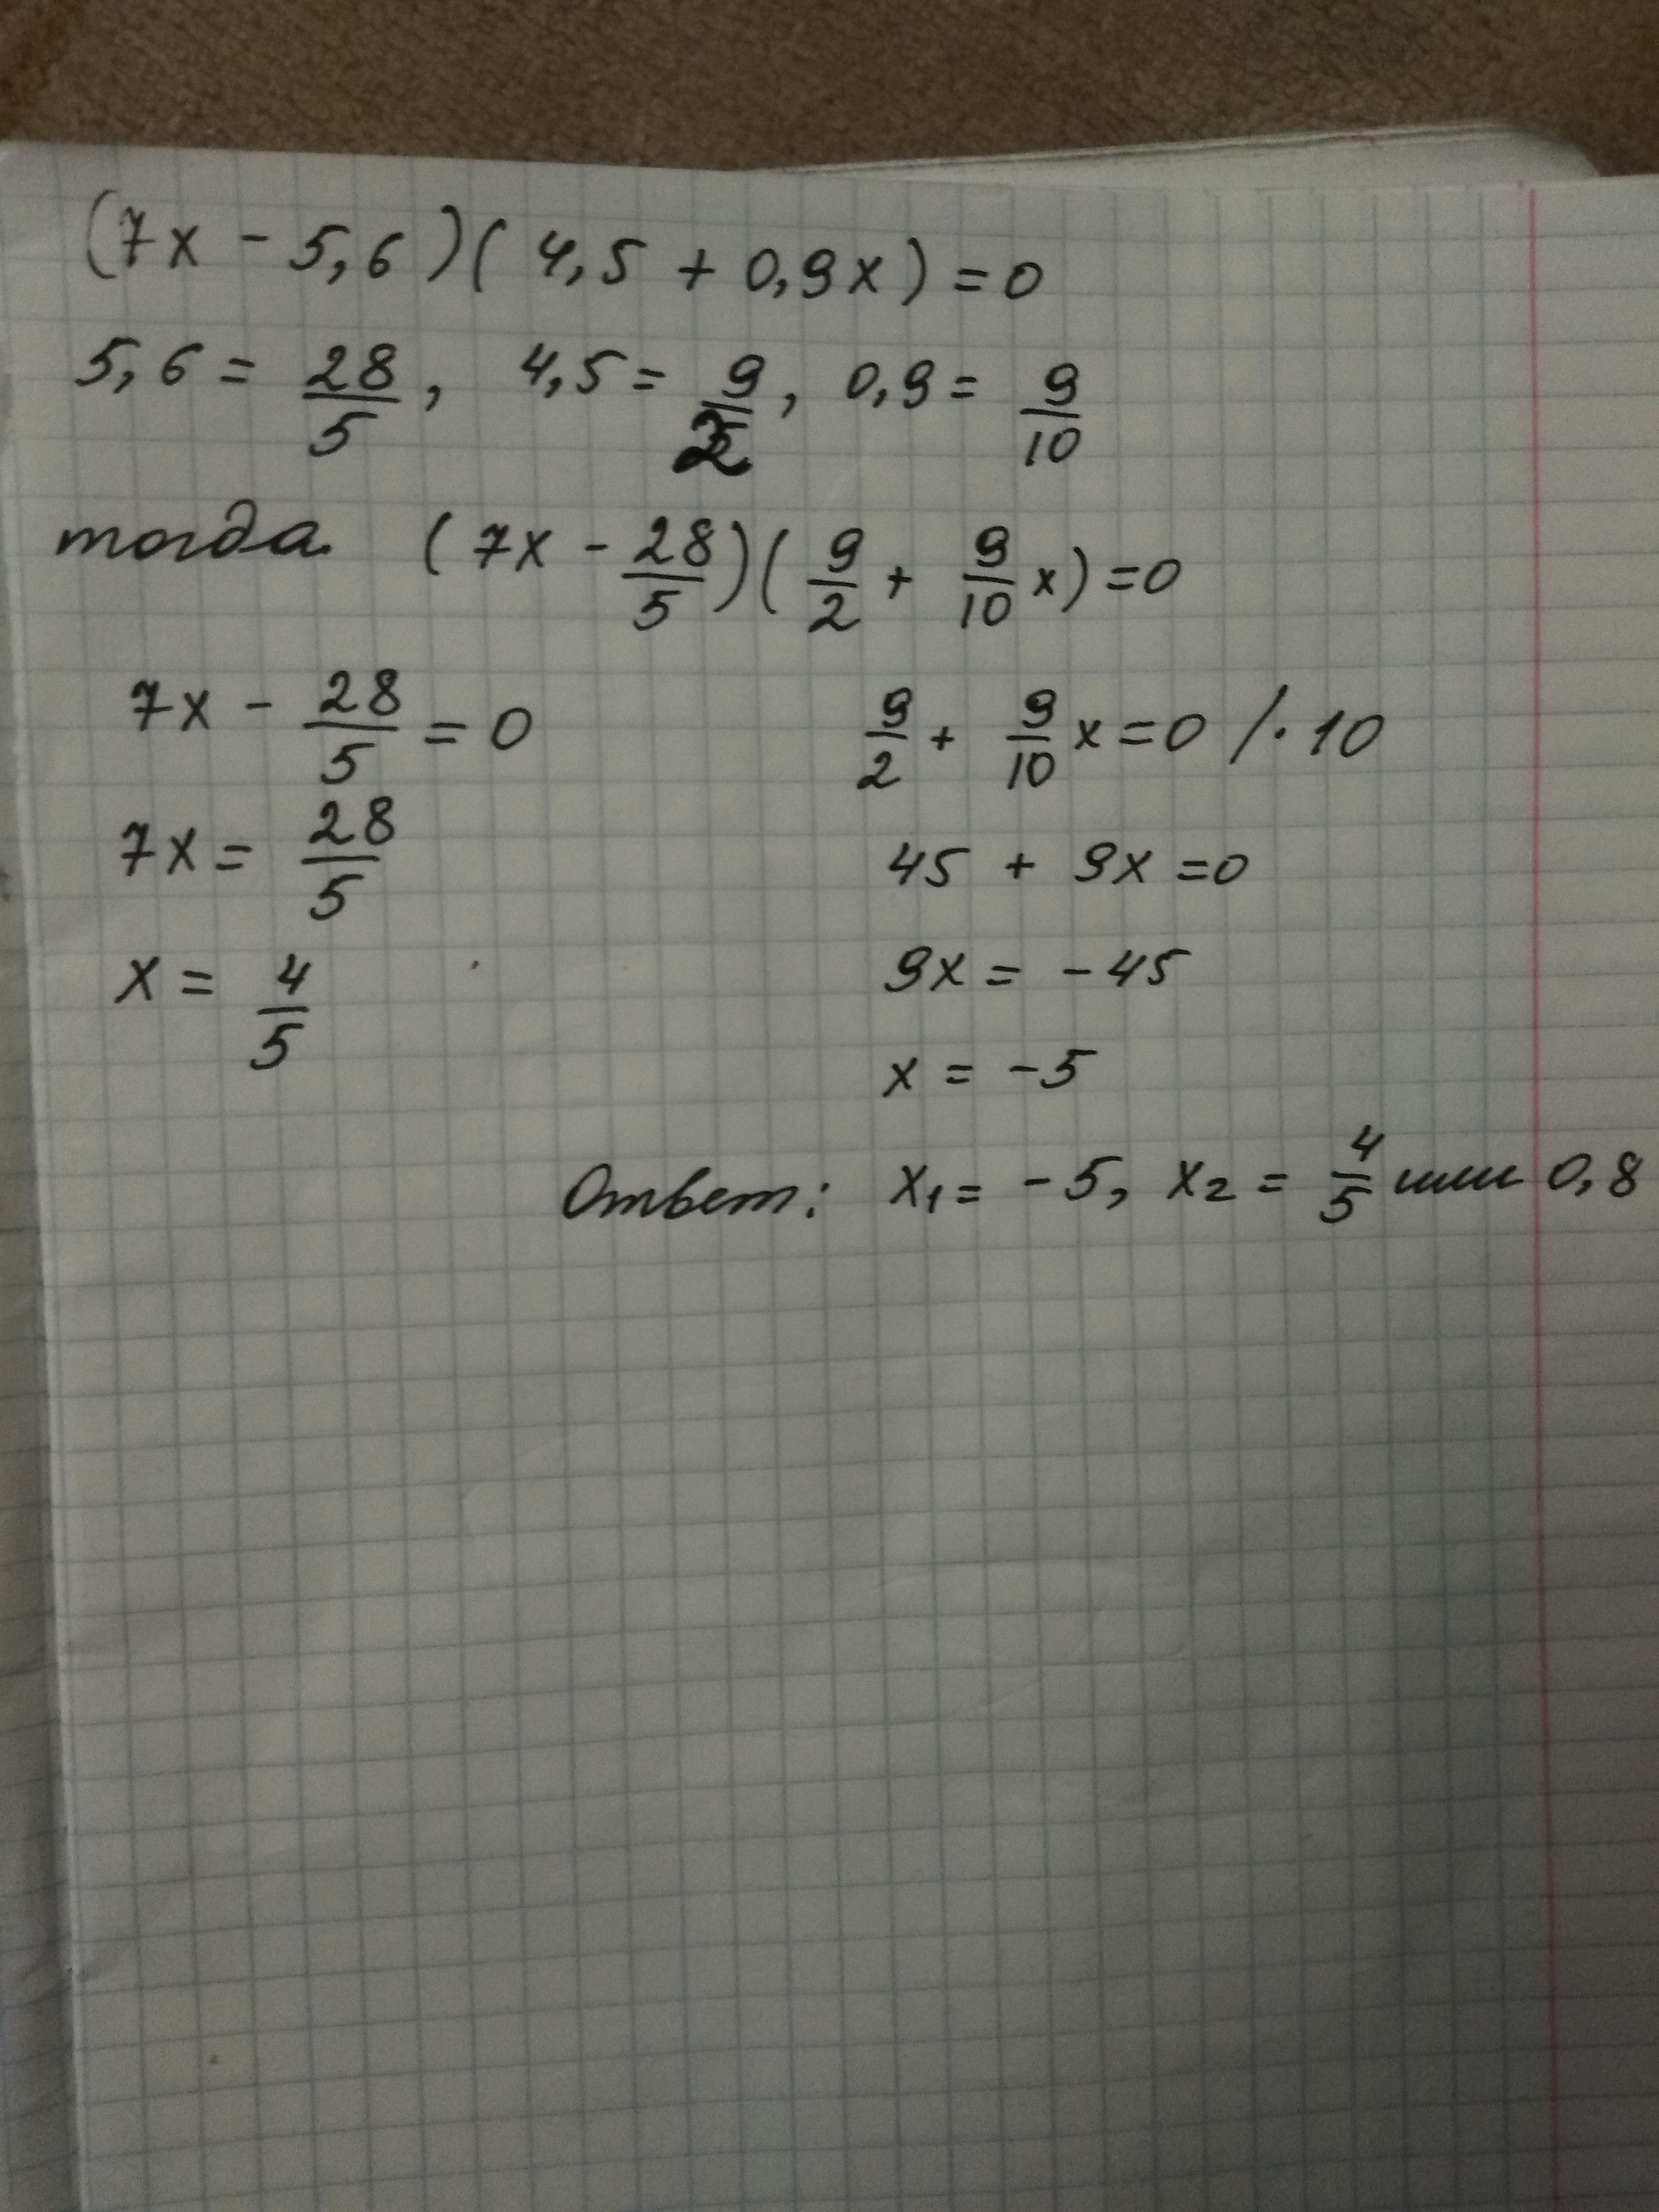 (7x - 5,6)(4,5 + 0,9x) = 0
5,6 = 28/5, 4,5 = 9/2, 0,9 = 9/10
тогда (7x - 28/5)(9/2 + 9/10 x) = 0
7x - 28/5 = 0
7x = 28/5
x = 4/5
9/2 + 9/10 x = 0 /· 10
45 + 9x = 0
9x = -45
x = -5
Ответ: x₁ = -5, x₂ = 4/5 или 0,8